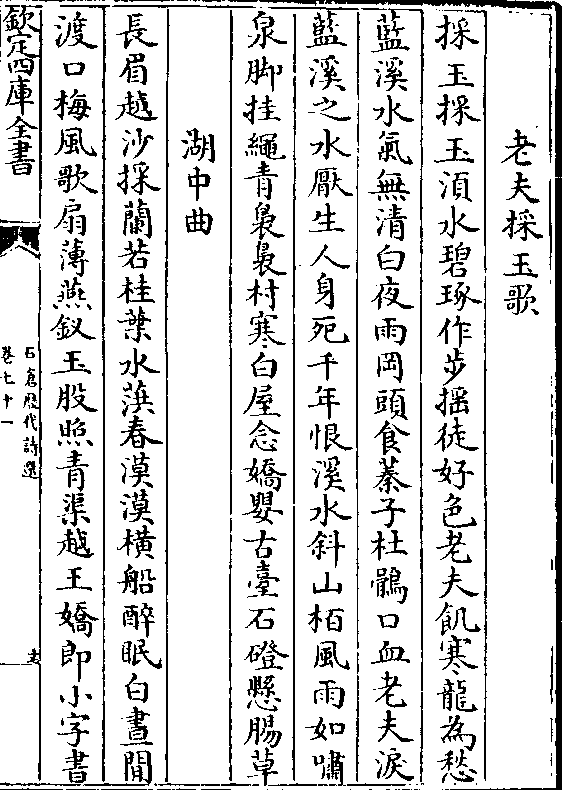 老夫採玉歌
採玉採玉湏水碧琢作步摇徒好色老夫飢寒龍為愁
藍溪水氣無清白夜雨岡頭食蓁子杜鵑口血老夫淚
藍溪之水厭生人身死千年恨溪水斜山栢風雨如嘯
泉脚挂繩青裊裊村寒白屋念嬌嬰古臺石磴懸腸草
湖中曲
長眉越沙採蘭若桂葉水葓春漠漠橫船醉眠白晝閒
渡口梅風歌扇薄燕釵玉股照青渠越王嬌郎小字書
欽定四庫全書
石倉歴代詩選
卷七十一